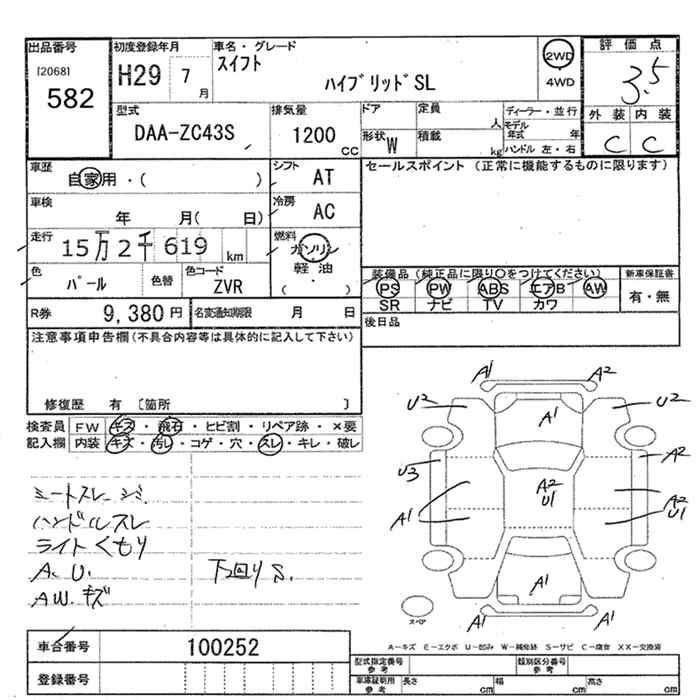 出品番号
[2068]
582
初度登録年月
H29 7月
車名・グレード
スイフト
ハイブリッドSL
2WD
4WD
評価点
3.5
外装 内装
C C
型式
DAA-ZC43S
排気量
1200 cc
ドア
定員 人
形状 W
積載 kg
ディーラー・並行
モデル年式 年
ハンドル 左・右
車歴
自家用・( )
シフト AT
車検
年 月( 日)
冷房 AC
走行
15万2千619km
燃料
ガソリン
軽油
( ・ )
色
パール
色替
色コード
ZVR
R券 9,380円
名変通知期限 月 日
セールスポイント (正常に機能するものに限ります)
装備品 (純正品に限り○をつけてください)
PS PW ABS エアB AW
SR ナビ TV カワ
新車保証書
有・無
後日品
注意事項申告欄(不具合内容等は具体的に記入して下さい)
修復歴 有 〔箇所 〕
検査員 FW キズ・飛石・ヒビ割・リペア跡・×要
記入欄 内装 キズ・汚レ・コゲ・穴・スレ・キレ・破レ
シートスレ シミ
ハンドルスレ
ライトくもり
A. U. 下回り S.
AW. キズ
A1 A2
U2 A1 U2
U3 A2
A2 U1
A1 A2 U1
A1
A1 A1
スペア
A−キズ E−エクボ U−凹み W−補修跡 S−サビ C−腐食 XX−交換済
車台番号 100252
登録番号
型式指定番号 参考
類別区分番号 参考
車庫証明用 参考 長さ cm 幅 cm 高さ cm